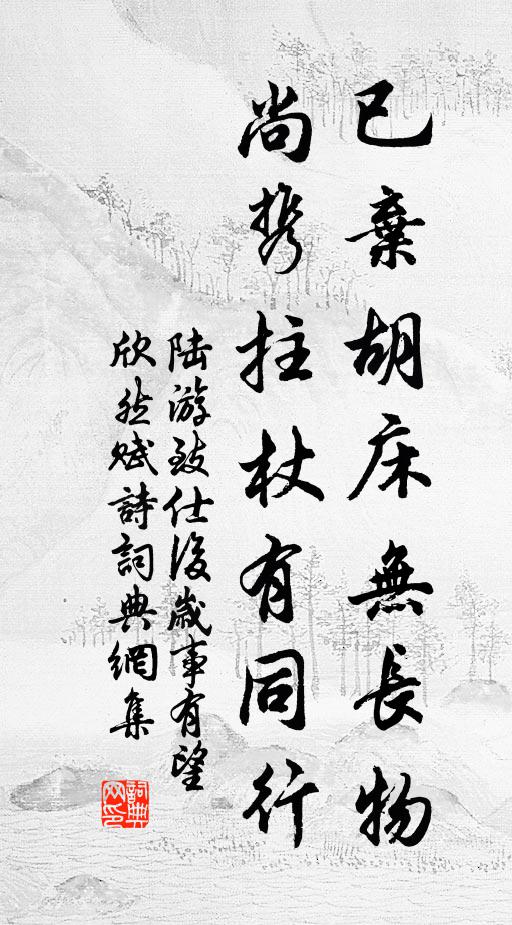 已棄胡床無長物
尚携拄杖有同行
陆游致仕後歲事有望
欣然赋詩詞典網集
詞典网印